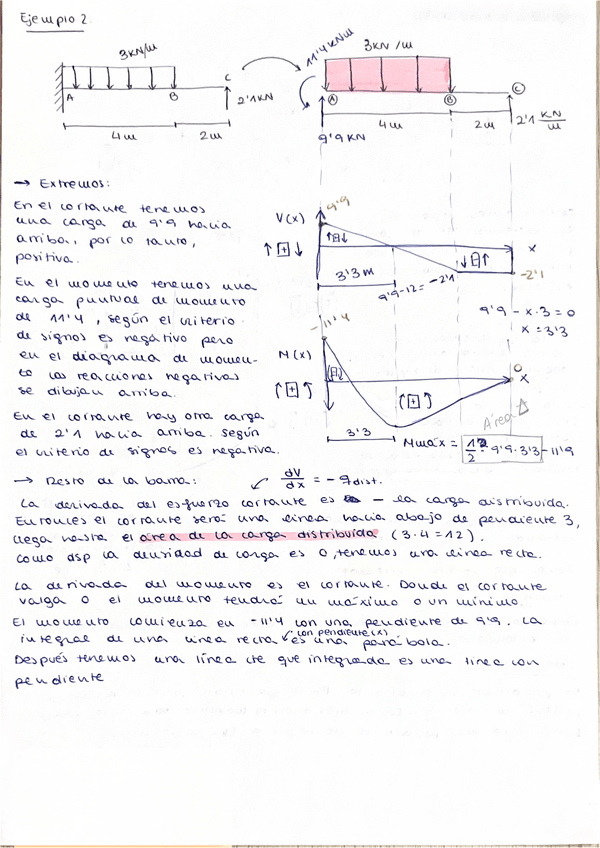 Ejemplo 2.
3KN/m
A
B
C
2'1KN
4m
2m
11'4KNm
3KN/m
A
B
C
9'9KN
4m
2m
2'1 KN/m
→ Extremos:
En el cortante tenemos
una carga de 9'9 hacia
arriba, por lo tanto,
positiva.
En el momento tenemos una
carga puntual de momento
de 11'4, según el criterio
de signos es negativo pero
en el diagrama de momen-
to las reacciones negativas
se dibujan arriba.
En el cortante hay otra carga
de 2'1 hacia arriba. Según
el criterio de signos es negativa.
V(x)
↑ + ↓
9'9
↑ + ↓
↓ + ↑
x
-2'1
3'3m
9'9-12=-2'1
9'9 - x·3 = 0
x = 3'3
-11'4
M(x)
+
+
0
x
3'3
Área Δ
Mmáx = 1/2 · 9'9·3'3 - 11'9
→ Resto de la barra: dV/dx = - qdist.
La derivada del esfuerzo cortante es - la carga distribuida.
Entonces el cortante será una línea hacia abajo de pendiente 3,
llega hasta el área de la carga distribuida (3·4=12).
Como dsp la densidad de carga es 0, tenemos una línea recta.
La derivada del momento es el cortante. Donde el cortante
valga 0 el momento tendrá un máximo o un mínimo.
El momento comienza en -11'4 con una pendiente de 9'9. La
integral de una línea recta con pendiente (x) es una parábola.
Después tenemos una línea cte que integrada es una línea con
pendiente